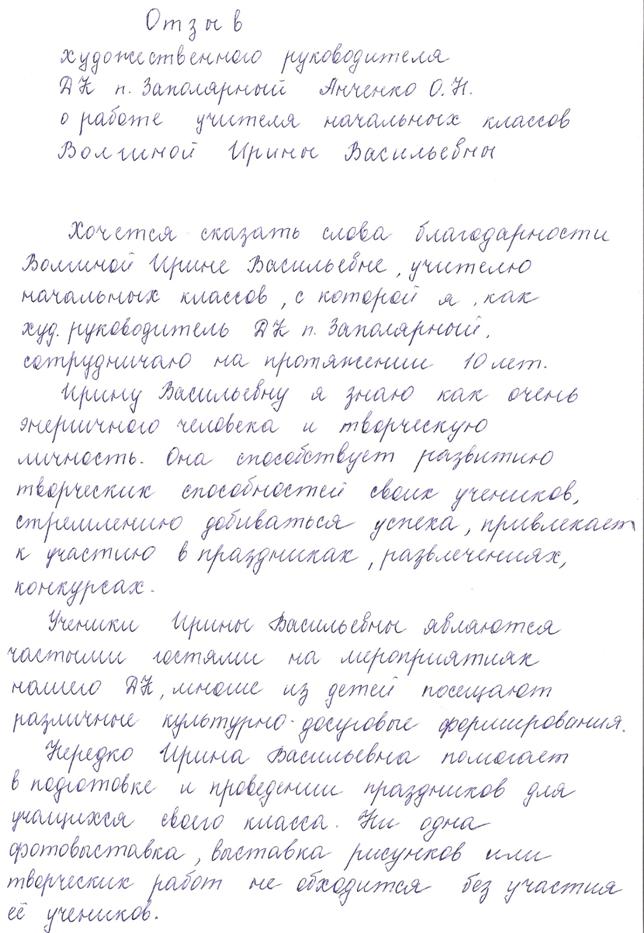 Отзыв
художественного руководителя
ДК п. Заполярный Анченко О.Н.
о работе учителя начальных классов
Волгиной Ирины Васильевны
Хочется сказать слова благодарности
Волгиной Ирине Васильевне, учителю
начальных классов, с которой я, как
худ. руководитель ДК п. Заполярный,
сотрудничаю на протяжении 10 лет.
Ирину Васильевну я знаю как очень
энергичного человека и творческую
личность. Она способствует развитию
творческих способностей своих учеников,
стремлению добиваться успеха, привлекает
к участию в праздниках, развлечениях,
конкурсах.
Ученики Ирины Васильевны являются
частыми гостями на мероприятиях
нашего ДК, многие из детей посещают
различные культурно-досуговые формирования.
Нередко Ирина Васильевна помогает
в подготовке и проведении праздников для
учащихся своего класса. Ни одна
фотовыставка, выставка рисунков или
творческих работ не обходится без участия
её учеников.